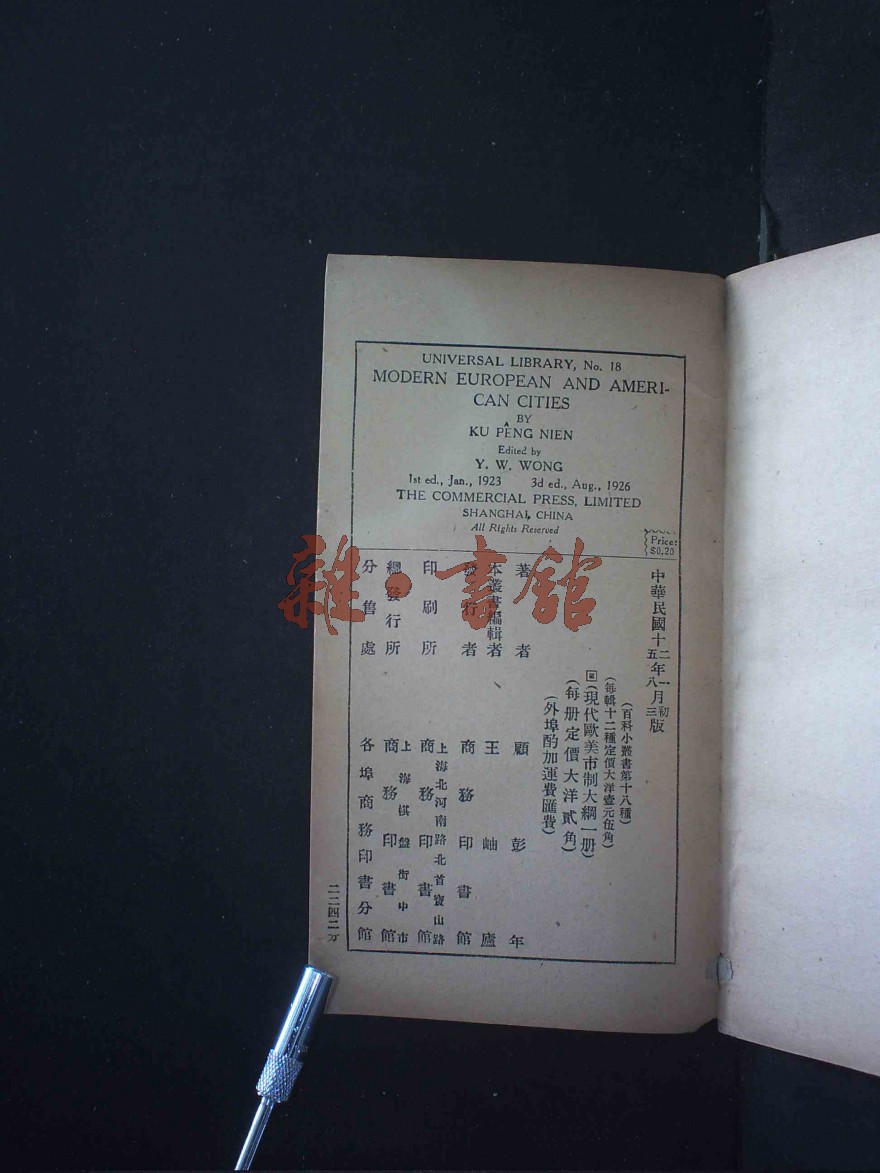 UNIVERSAL LIBRARY, No. 18
MODERN EUROPEAN AND AMERI-
CAN CITIES
BY
KU PÊNG NIEN
Edited by
Y. W. WONG
1st ed., Jan., 1923 3d ed., Aug., 1926
THE COMMERCIAL PRESS, LIMITED
SHANGHAI, CHINA
All Rights Reserved
Price:
$0.20
中華民國十二年一月初版
五 八 三
(百科小叢書第十八種)
(每輯十二種定價大洋壹元伍角)
(現代歐美市制大綱一册)
(每册定價大洋貳角)
(外埠酌加運費匯費)
著者 顧彭年
本叢書編輯者 王岫廬
發行者 商務印書館
印刷所 上海北河南路北首寶山路 商務印書館
總發行所 上海棋盤街中市 商務印書館
分售處 各埠商務印書分館
雜·書館